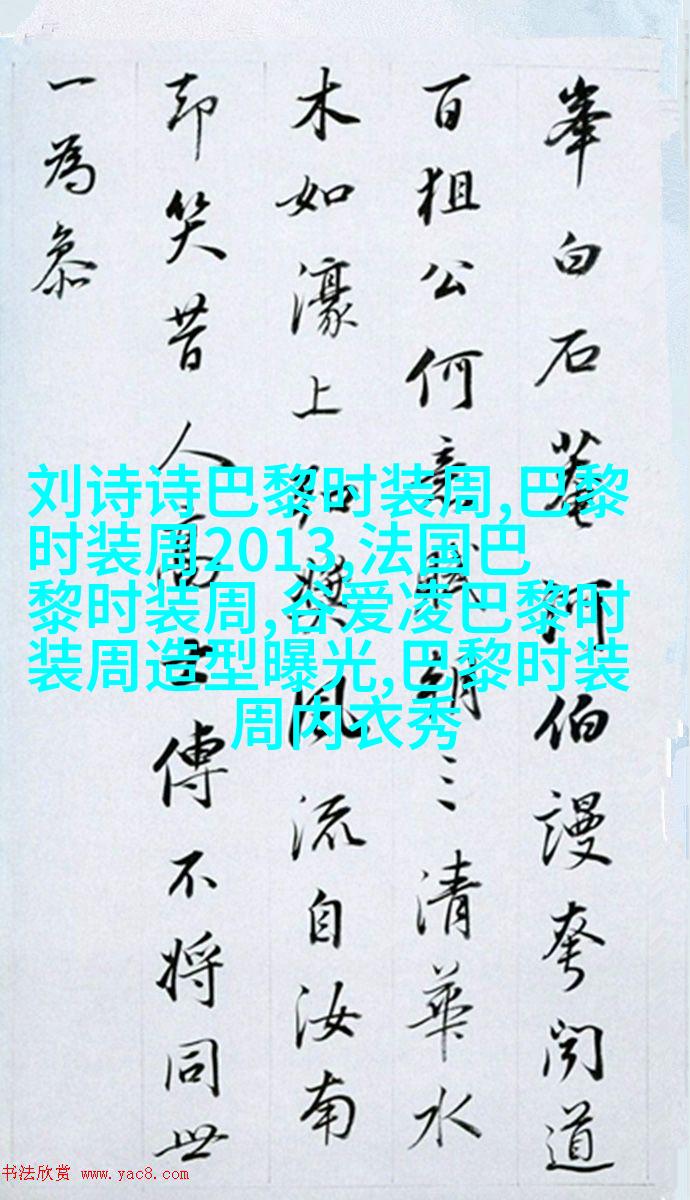 峯白石菴河伯謾夸閒道
百狙公何喜賦朝三清華水
木如濠上知樂風流自汝南
却笑昔人高士傳不將同世
一為叅
刘诗诗巴黎时装周,巴黎
时装周2013,法国巴
黎时装周,谷爱凌巴黎时
装周造型曝光,巴黎时装
周内衣秀
书法欣赏 www.yac8.com